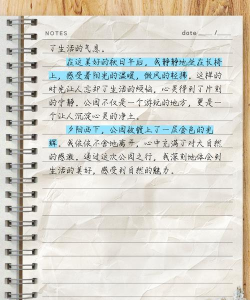 NOTES date / /
了生活的气息。
在这美好的秋日午后，我静静地坐在长椅
上，感受着阳光的温暖，微风的轻拂，这样的
时光让人忘却了生活的烦恼，心灵得到了片刻
的宁静。公园不仅是一个游玩的地方，更是一
个让人沉淀心灵的净土。
夕阳西下，公园被镀上了一层金色的光
辉。我依依不舍地离开，心中充满了对大自然
的感激。通过这次公园之行，我深刻地体会到
生活的美好，感受到自然的魅力。